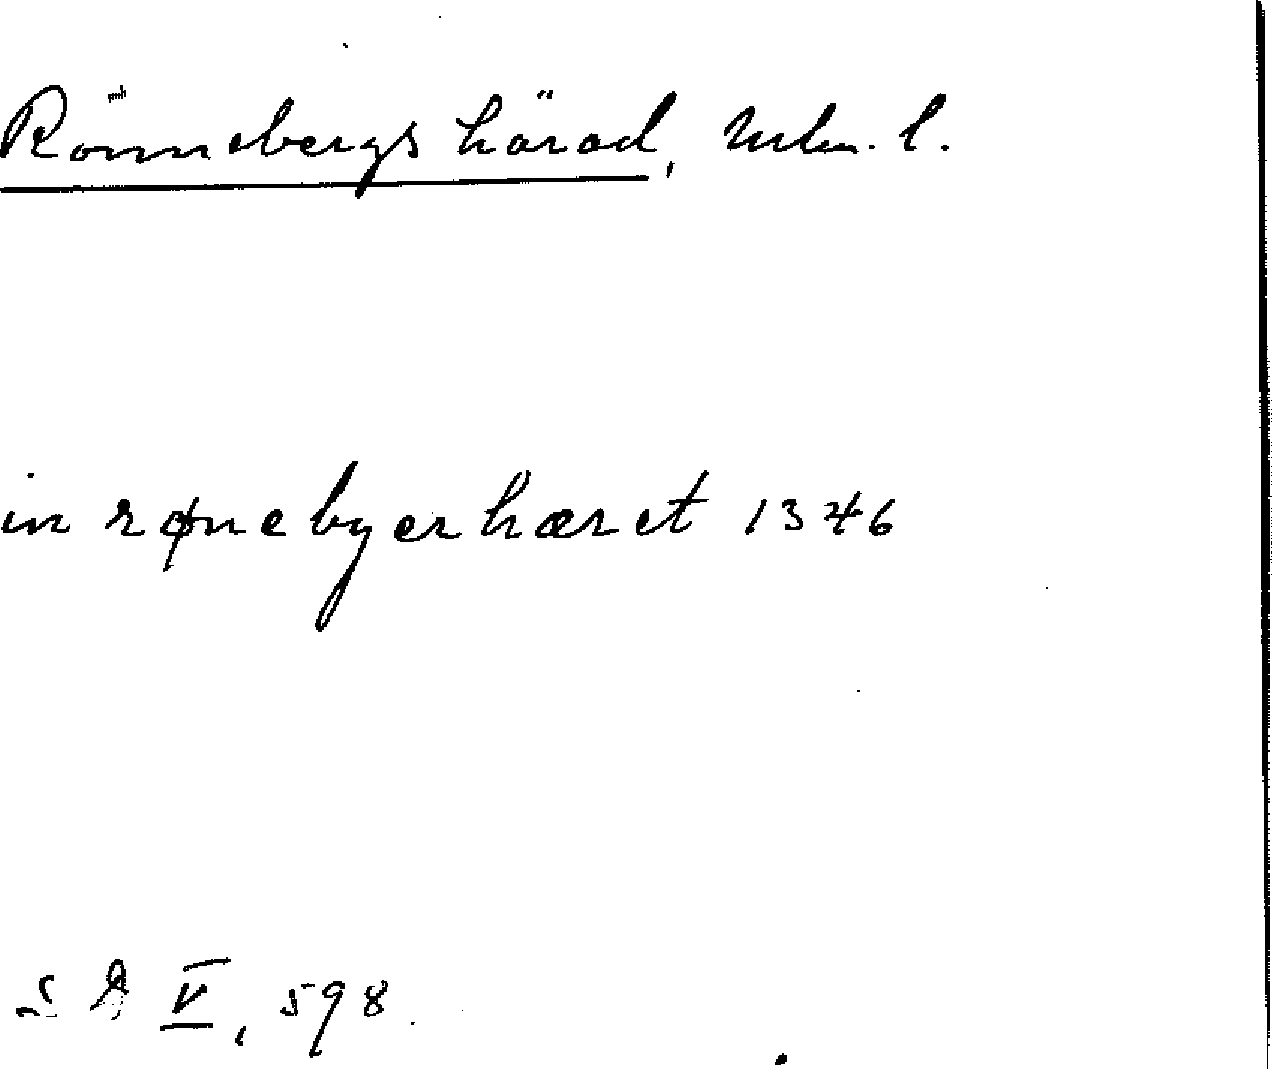 Rönnebergs härad, Mlm. l.
in rønebyerhæret 1346
SD V, 598